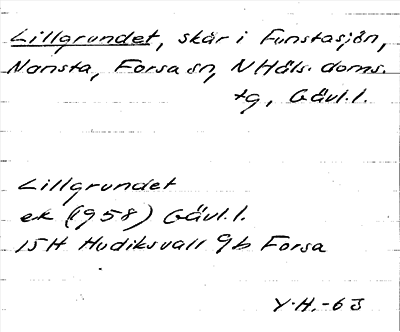 Lillgrundet, skär i Funstasjön,
Nansta, Forsa sn, N Häls. doms.
tg, Gävl.l.
Lillgrundet
ek (1958) Gävl.l.
15H Hudiksvall 9b Forsa
Y.H.-63